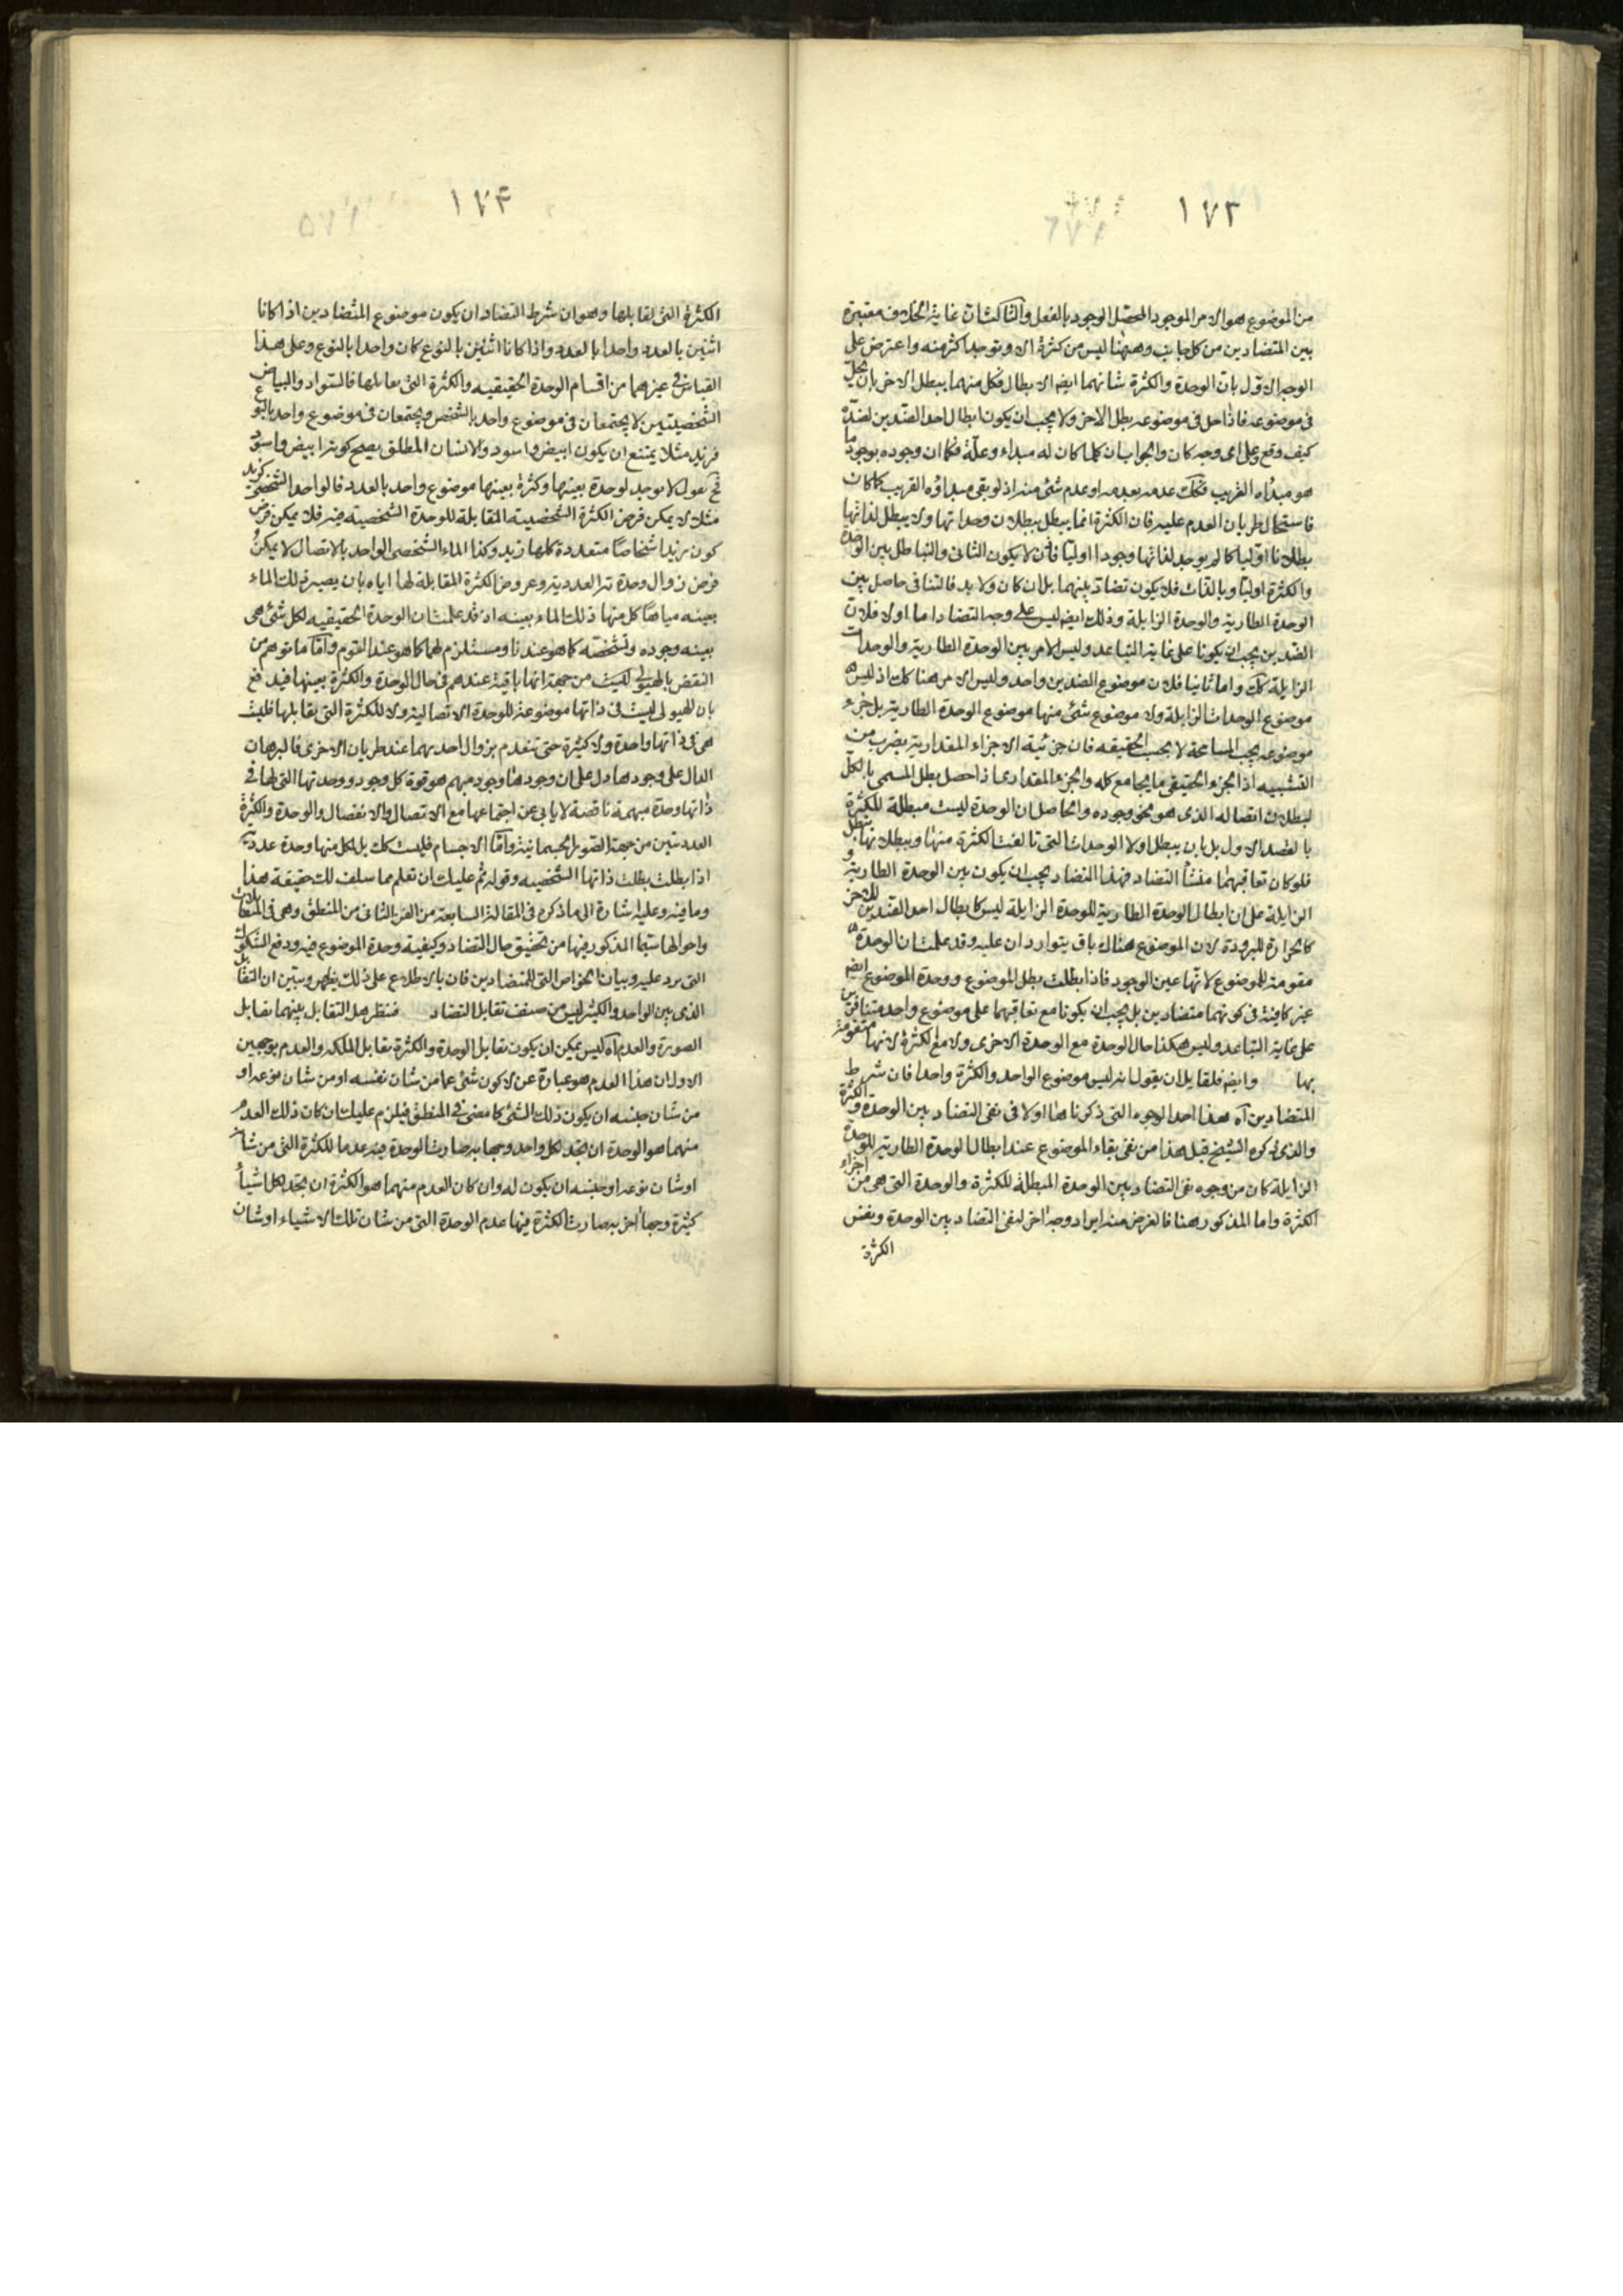 ١٧٣
من الموضوع هو الامر الموجود المحصّل الوجود بالفعل والثالث ان غاية الخلاف معتبرة
بين المتضادين من كل جانب وههنا ليس من كثرة الا ويوجد اكثر منه واعترض على
الوجه الاول بان الوحدة والكثرة شانهما ايضا الابطال فكل منهما يبطل الاخر بان يحلّ
فى موضوعه فاذا حل فى موضوعه بطل الاخر ولا يجب ان يكون ابطال احد الضدين لضدّه
كيف وقع وعلى اى وجه كان والجواب ان كلما كان له مبداء وعلّة فكما ان وجوده بوجود ما
هو مبدأه القريب فكك عدمه بعدمه او عدم شئ منه اذ لو بقى مبداؤه القريب كما كان
فاستحال طريان العدم عليه فان الكثرة انما يبطل ببطلان وحداتها ولا يبطل لذاتها
بطلانا اوّليا كما لم يوجد لذاتها وجودا اوليّا فاذن لا يكون التنافى والتباطل بين الوحدة
والكثرة اوليّا وبالذات فلا يكون تضادّ بينهما بل ان كان ولا بد فالتنافى حاصل بين
الوحدة الطارية والوحدة الزايلة وذلك ايضا ليس على وجه التضاد اما اولا فلان
الضدين يجب ان يكونا على غاية التباعد وليس الامر بين الوحدة الطارية والوحدات
الزايلة كك واما ثانيا فلان موضوع الضدين واحد وليس الامر هنا كك اذ ليس
موضوع الوحدات الزايلة ولا موضوع شئ منها موضوع الوحدة الطارية بل جزء
موضوعه بحسب المسامحة لا بحسب الحقيقه فان جزئية الاجزاء المقدارية بضرب من
التشبيه اذ الجزء الحقيقى ما يجامع كله والجزء المقدارى اذا حصل بطل المسمى بالكل
لبطلان اتصاله الذى هو نحو وجوده والحاصل ان الوحدة ليست مبطلة للكثرة
بالقصد الاول بل بان يبطل اولا الوحدات التى تالفت الكثرة منها وببطلانها تبطل
فلو كان تعاقبهما منشأ التضاد فهذا التضاد يجب ان يكون بين الوحدة الطارية و
الزايلة على ان ابطال الوحدة الطارية للوحدة الزايلة ليس كابطال احد الضدين للاخر
كالحرارة للبرودة لان الموضوع هناك باق يتواردان عليه وقد علمت ان الوحدة
مقومة للموضوع لانها عين الوجود فاذا بطلت بطل الموضوع ووحدة الموضوع ايضا
غير كافية فى كونهما متضادين بل يجب ان يكونا مع تعاقبهما على موضوع واحد متنافيين
على غاية التباعد وليس هكذا حال الوحدة مع الوحدة الاخرى ولا مع الكثرة لانها متقومة
بها وايضا فلقايل ان يقول انه ليس موضوع الواحد والكثرة واحدا فان شرط
المتضادين آه هذا احد الوجوه التى ذكرناها اولا فى نفى التضاد بين الوحدة والكثرة
والذى ذكره الشيخ قبل هذا من نفى بقاء الموضوع عند ابطال الوحدة الطارية للوحدة
الزايلة كان من وجوه نفى التضاد بين الوحدة المبطلة للكثرة والوحدة التى هى من اجزاء
الكثرة واما المذكور هنا فالغرض منه ايراد وجه اخر لنفى التضاد بين الوحدة ونفس
الكثرة
١٧۴
الكثرة التى تقابلها وهو ان شرط التضاد ان يكون موضوع المتضادين اذا كانا
اثنين بالعدد واحدا بالعدد واذا كانا اثنين بالنوع كان واحدا بالنوع وعلى هذا
القياس فى غيرهما من اقسام الوحدة الحقيقيه والكثرة التى تقابلها فالسواد والبياض
الشخصيتين لا يجتمعان فى موضوع واحد بالشخص ويجتمعان فى موضوع واحد بالنوع
فزيد مثلا يمتنع ان يكون ابيض واسود والانسان المطلق يصح كونه ابيض واسود
ثم نقول لا يوجد لوحدة بعينها وكثرة بعينها موضوع واحد بالعدد فالواحد الشخصى كزيد
مثلا لا يمكن فرض الكثرة الشخصيته المقابلة للوحدة الشخصيته فيه فلا يمكن فرض
كون زيد اشخاصا متعددة كلها زيد وكذا الماء الشخصى الواحد بالاتصال لا يمكن
فرض زوال وحدته العددية وعروض الكثرة المقابلة لها اياه بان يصير ذلك الماء
بعينه مياها كل منها ذلك الماء بعينه اذ قد علمت ان الوحدة الحقيقيه لكل شئ هى
بعينه وجوده وتشخصه كما هو عندنا ومستلزم لهما كما هو عند القوم وامّا ما توهم من
النقض بالهيولى لكيث من جهة انها باقية عندهم فى حال الوحدة والكثرة بعينها فيدفع
بان الهيولى ليست فى ذاتها موضوعة للوحدة الاتصالية ولا للكثرة التى يقابلها فليست
هى فى ذاتها واحدة ولا كثيرة حتى تنعدم بزوال احديهما عند طريان الاخرى فالبرهان
الدال على وجودها دل على ان وجودها وجود مبهم هو قوة كل وجود ووحدتها التى لها فى
ذاتها وحدة مبهمة ناقصة لا يابى عن اجتماعها مع الاتصال والانفصال والوحدة والكثرة
العددتين من جهة الصور الجسمانية وامّا الاجسام فليست كك بل لكل منها وحدة عددية
اذا بطلت بطلت ذاتها الشخصيه وقوله ثم عليك ان تعلم مما سلف لك حقيقة هذا
وما فيه وعليه اشارة الى ما ذكره فى المقالة السابعة من الفن الثانى من المنطق وهى فى المتقابلات
واحوالها سيّما المذكور فيها من تحقيق حال التضاد وكيفية وحدة الموضوع فيه ودفع الشكوك
التى يرد عليه وبيان الخواص التى للمتضادين فان بالاطلاع على ذلك يظهر ويتبين ان التقابل
الذى بين الواحد والكثير ليس من صنف تقابل التضاد فننظر هل التقابل بينهما تقابل
الصورة والعدم آه ليس يمكن ان يكون تقابل الوحدة والكثرة تقابل الملكة والعدم بوجهين
الاول ان هذا العدم هو عبارة عن لا كون شئ عما من شان نفسه او من شان نوعه او
من شان جنسه ان يكون ذلك الشئ كما مضى فى المنطق فيلزم عليك ان كان ذلك العدم
منهما هو الوحدة ان تجد لكل واحد وجها به صارت الوحدة فيه عدما للكثرة التى من شانه
او شان نوعه او جنسه ان يكون له وان كان العدم منهما هو الكثرة ان تجد لكل اشياء
كثيرة وجها اخر به صارت الكثرة فيها عدم الوحدة التى من شان تلك الاشياء او شان